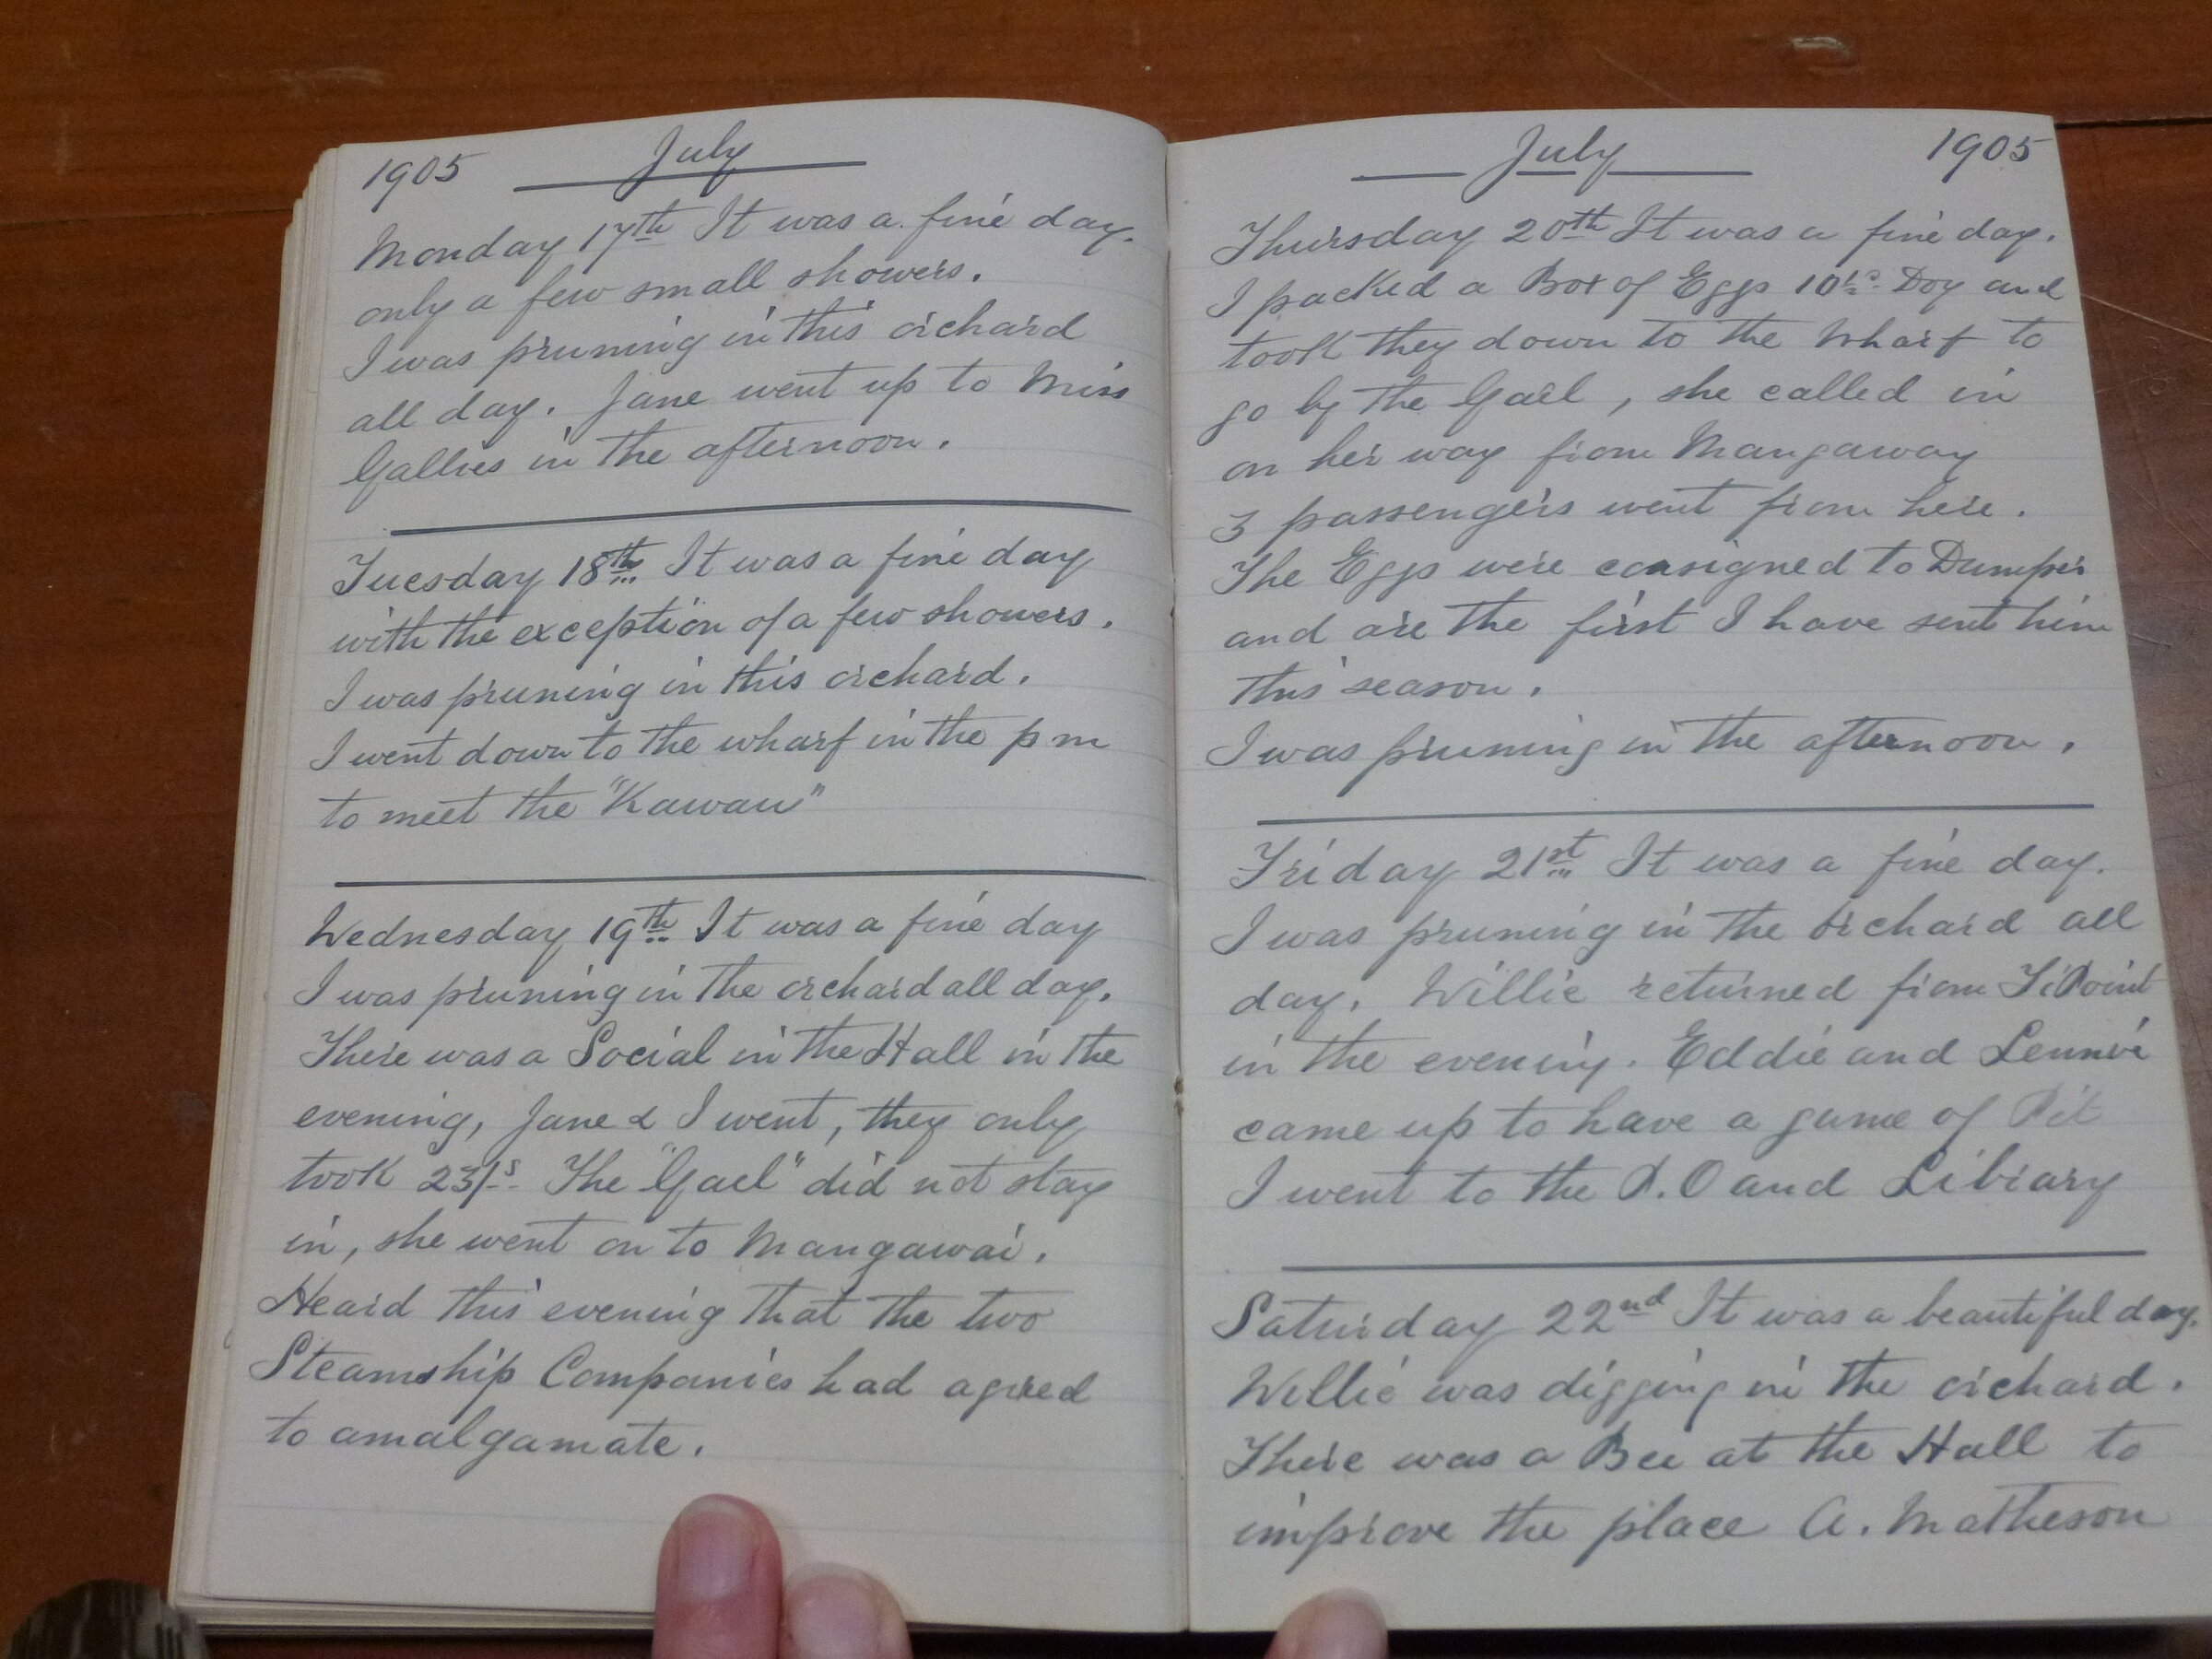 1905 July
Monday 17th It was a fine day.
only a few small showers.
I was pruning in this orchard
all day. Jane went up to Miss
Gallies in the afternoon.
Tuesday 18th It was a fine day
with the exception of a few showers.
I was pruning in this orchard.
I went down to the wharf in the pm
to meet the "Kawau"
Wednesday 19th It was a fine day
I was pruning in the orchard all day.
There was a Social in the Hall in the
evening, Jane & I went, they only
took 23/s. The "Gael" did not stay
in, she went on to Mangawai.
Heard this evening that the two
Steamship Companies had agreed
to amalgamate.
July 1905
Thursday 20th It was a fine day.
I packed a Box of Eggs Doz and
took they down to the Wharf to
go by the Gael, she called in
on her way from Mangaway
3 passengers went from here.
The Eggs were consigned to Dumper
and are the first I have sent him
this season.
I was pruning in the afternoon.
Friday 21st It was a fine day.
I was pruning in the orchard all
day. Willie returned from Ti Point
in the evening. Eddie and Lennie
came up to have a game of Pit
I went to the P.O and Library
Saturday 22nd It was a beautiful day.
Willie was digging in the orchard.
There was a Bee at the Hall to
improve the place A. Matheson